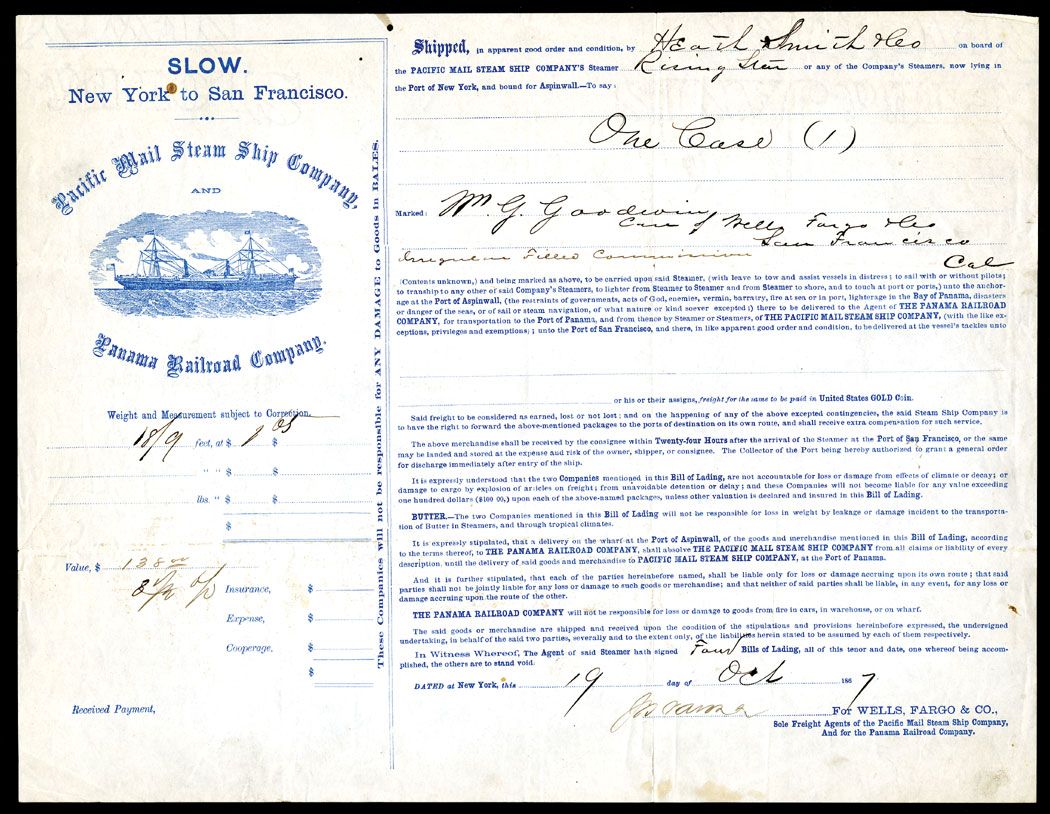 SLOW.
New York to San Francisco.
Pacific Mail Steam Ship Company,
AND
Panama Railroad Company.
Weight and Measurement subject to Correction.
18/9 feet, at $ 1 05 $
" " $ $
lbs. " $ $
$
Value, $ 138 00
Insurance, $
Expense, $
Cooperage, $
$
Received Payment,
These Companies will not be responsible for ANY DAMAGE to Goods in BALES.
Shipped, in apparent good order and condition, by Heath Smith & Co on board of
the PACIFIC MAIL STEAM SHIP COMPANY'S Steamer Rising Star or any of the Company's Steamers, now lying in
the Port of New York, and bound for Aspinwall.—To say:
One Case (1)
Marked: Wm G. Goodwin
Care of Wells Fargo & Co
San Francisco
Cal
(Contents unknown,) and being marked as above, to be carried upon said Steamer, (with leave to tow and assist vessels in distress; to sail with or without pilots;
to tranship to any other of said Company's Steamers, to lighter from Steamer to Steamer and from Steamer to shore, and to touch at port or ports,) unto the anchor-
age at the Port of Aspinwall, (the restraints of governments, acts of God, enemies, vermin, barratry, fire at sea or in port, lighterage in the Bay of Panama, disasters
or danger of the seas, or of sail or steam navigation, of what nature or kind soever excepted;) there to be delivered to the Agent of THE PANAMA RAILROAD
COMPANY, for transportation to the Port of Panama, and from thence by Steamer or Steamers, of THE PACIFIC MAIL STEAM SHIP COMPANY, (with the like ex-
ceptions, privileges and exemptions;) unto the Port of San Francisco, and there, in like apparent good order and condition, to be delivered at the vessel's tackles unto
or his or their assigns, freight for the same to be paid in United States GOLD Coin.
Said freight to be considered as earned, lost or not lost; and on the happening of any of the above excepted contingencies, the said Steam Ship Company is
to have the right to forward the above-mentioned packages to the ports of destination on its own route, and shall receive extra compensation for such service.
The above merchandise shall be received by the consignee within Twenty-four Hours after the arrival of the Steamer at the Port of San Francisco, or the same
may be landed and stored at the expense and risk of the owner, shipper, or consignee. The Collector of the Port being hereby authorized to grant a general order
for discharge immediately after entry of the ship.
It is expressly understood that the two Companies mentioned in this Bill of Lading, are not accountable for loss or damage from effects of climate or decay; or
damage to cargo by explosion of articles on freight; from unavoidable detention or delay; and these Companies will not become liable for any value exceeding
one hundred dollars ($100 00,) upon each of the above-named packages, unless other valuation is declared and insured in this Bill of Lading.
BUTTER.—The two Companies mentioned in this Bill of Lading will not be responsible for loss in weight by leakage or damage incident to the transporta-
tion of Butter in Steamers, and through tropical climates.
It is expressly stipulated, that a delivery on the wharf at the Port of Aspinwall, of the goods and merchandise mentioned in this Bill of Lading, according
to the terms thereof, to THE PANAMA RAILROAD COMPANY, shall absolve THE PACIFIC MAIL STEAM SHIP COMPANY from all claims or liability of every
description, until the delivery of said goods and merchandise to PACIFIC MAIL STEAM SHIP COMPANY, at the Port of Panama.
And it is further stipulated, that each of the parties hereinbefore named, shall be liable only for loss or damage accruing upon its own route; that said
parties shall not be jointly liable for any loss or damage to such goods or merchandise; and that neither of said parties shall be liable, in any event, for any loss or
damage accruing upon the route of the other.
THE PANAMA RAILROAD COMPANY will not be responsible for loss or damage to goods from fire in cars, in warehouse, or on wharf.
The said goods or merchandise are shipped and received upon the condition of the stipulations and provisions hereinbefore expressed, the undersigned
undertaking, in behalf of the said two parties, severally and to the extent only, of the liabilities herein stated to be assumed by each of them respectively.
In Witness Whereof, The Agent of said Steamer hath signed Four Bills of Lading, all of this tenor and date, one whereof being accom-
plished, the others are to stand void.
DATED at New York, this 19 day of Oct 1867
For WELLS, FARGO & CO.,
Sole Freight Agents of the Pacific Mail Steam Ship Company,
And for the Panama Railroad Company.